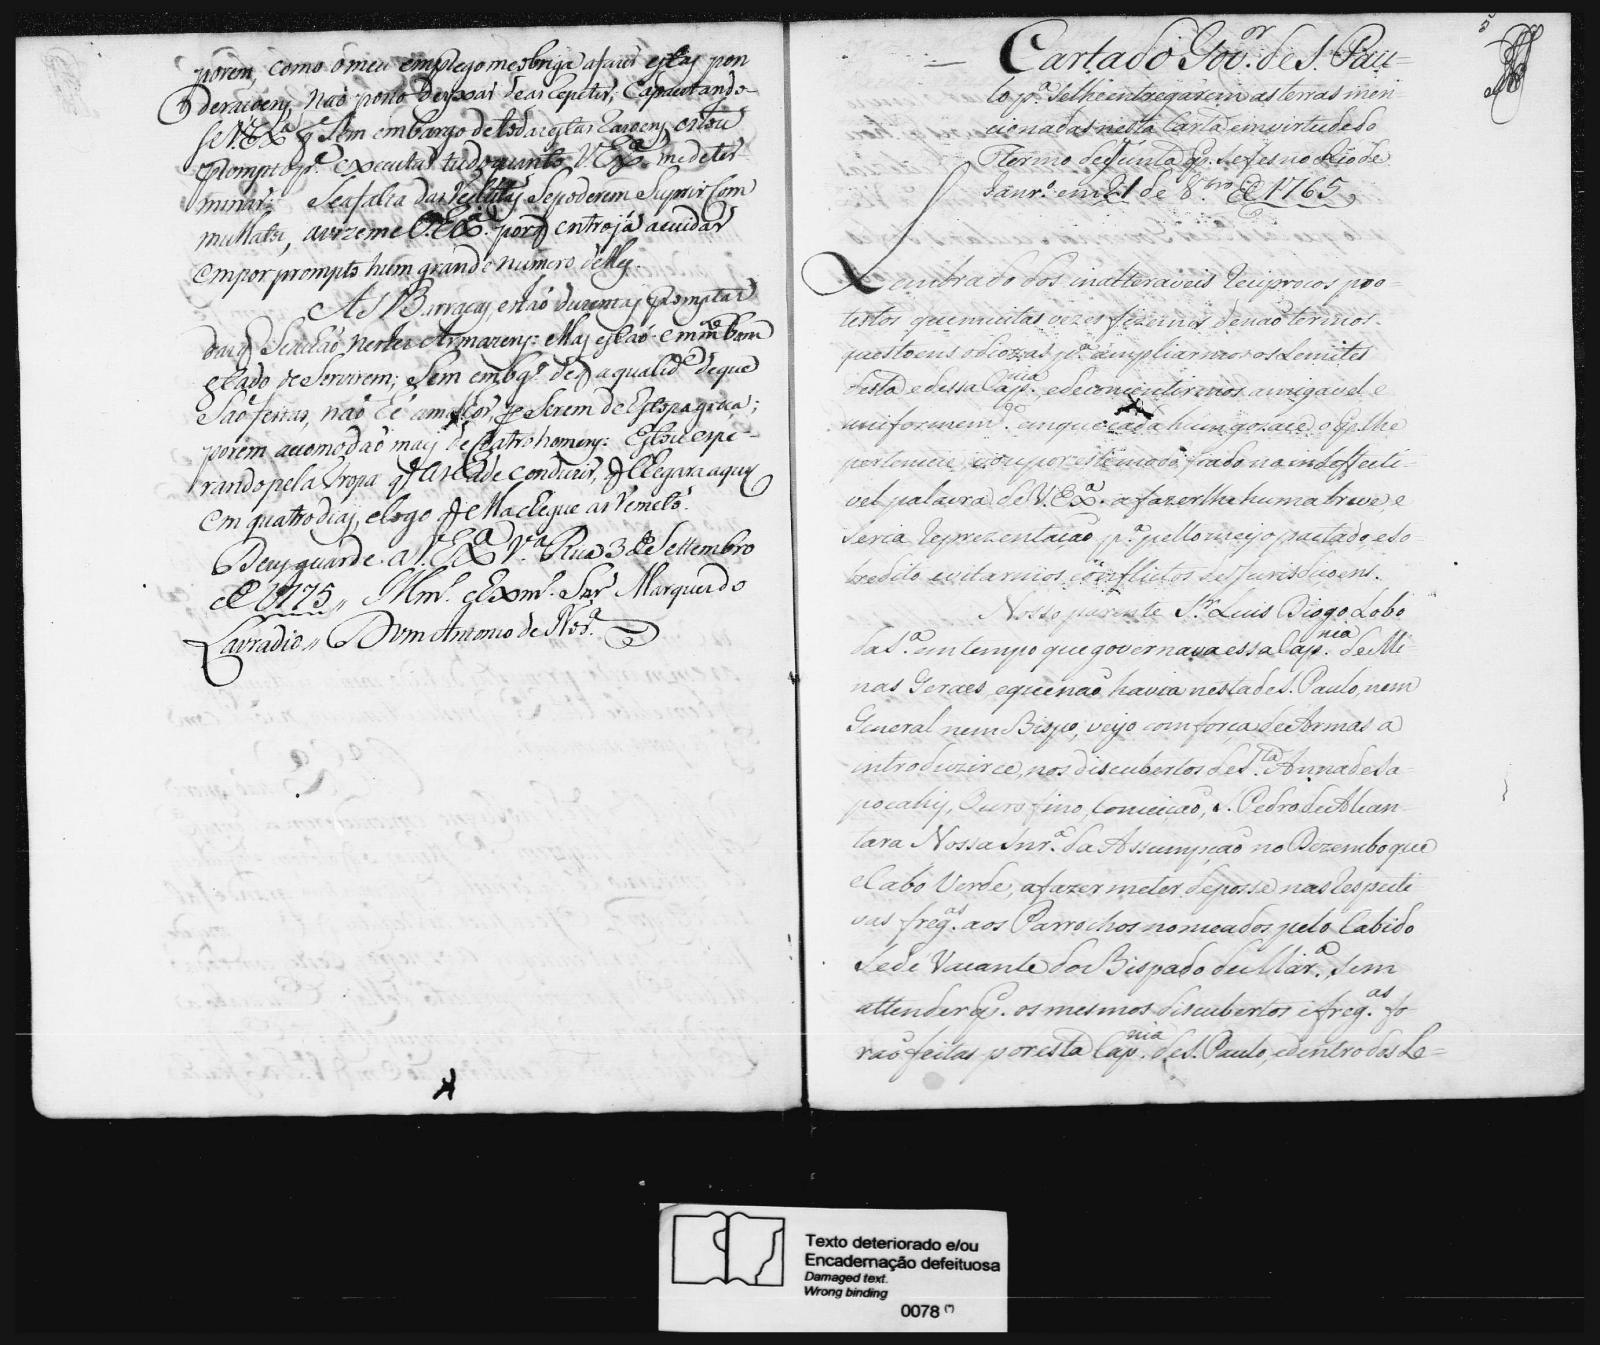 porem, como o meu emprego me obriga afazer estas pon
deraçoens, Não posso deixar de as repetir, Capacitando-
se V.Exª q̃ Sem embargo de todas estas Razoens estou
prompto pª executar tudo quanto V.Exª me deter-
minar: Se afalta das Sepoderem Suprir Com
mullatos, avizeme V.Exª porq̃ entro já acuidar
em por prompto hum grande numero delles.
As Barracas, estão duzentas promptas
das q̃ Se achão nestes Armazens: Mas estão em mto bom
estado de Servirem; Sem embgo de q̃ a qualide de que
São feitas, não hé amelhor, por Serem de
porem acomodão mais de quatro homens: Estou espe-
rando pela Tropa q̃ as ade conduzir, q̃ chegara aquy
em quatro dias, e logo q̃ ella chegue as remeto.
Deus guarde a V.Exª Vª Rica 3 de Settembro
de 1775,, Illmo. e Exmo. Snr Marquez do
Lavradio,, Dom Antonio de Norª.
5
Carta do Govor. de S. Pau=
lo pª. se lhe entregarem as terras men-
cionadas nesta Carta em virtude do
Termo de Junta q̃. se fes no Rio de
Janro. em 21 de 8.bro de 1765,
Lembrado dos inalteraveis Reciprocos pro-
testos que muitas vezes fizemos de não termos.
questoens odiozas pª. ampliarmos os Lemites
desta e dessa Capnia. e de consentirmos amigavel e
uniformemte. em que cada hum gozace do q̃ lhe
pertencia, vou por este modo fiado na indeffecti-
vel palavra de V.Exª. a fazerlhe huma breve, e
seria Reprezentação pª. pello meyo pactado, e so-
bredito evitarmos conflictos de Jurisdicoens.
Nosso parente o Sr. Luis Diogo Lobo
da Sª. em tempo que governava essa Capnia. de Mi-
nas Geraes, e que não havia nesta de S. Paulo, nem
General nem Bispo, veyo com força de Armas a
introduzirce, nos discubertos de Sta. Anna de Sa-
pocahy, Ouro fino, Conceicão, S. Pedro de Alcan-
tara Nossa Snrª. da Assumpção no Dezemboque
e Cabo Verde, a fazer meter de posse nas Respecti-
vas fregas. aos Parrochos nomeados pelo Cabido
Sede Vacante do Bispado de Marª. sem
attender q̃. os mesmos discubertos e fregas. fo-
rão feitas por esta Capnia. de S. Paulo, e dentro dos Le=
Texto deteriorado e/ou
Encadernação defeituosa
Damaged text.
Wrong binding
0078 (*)